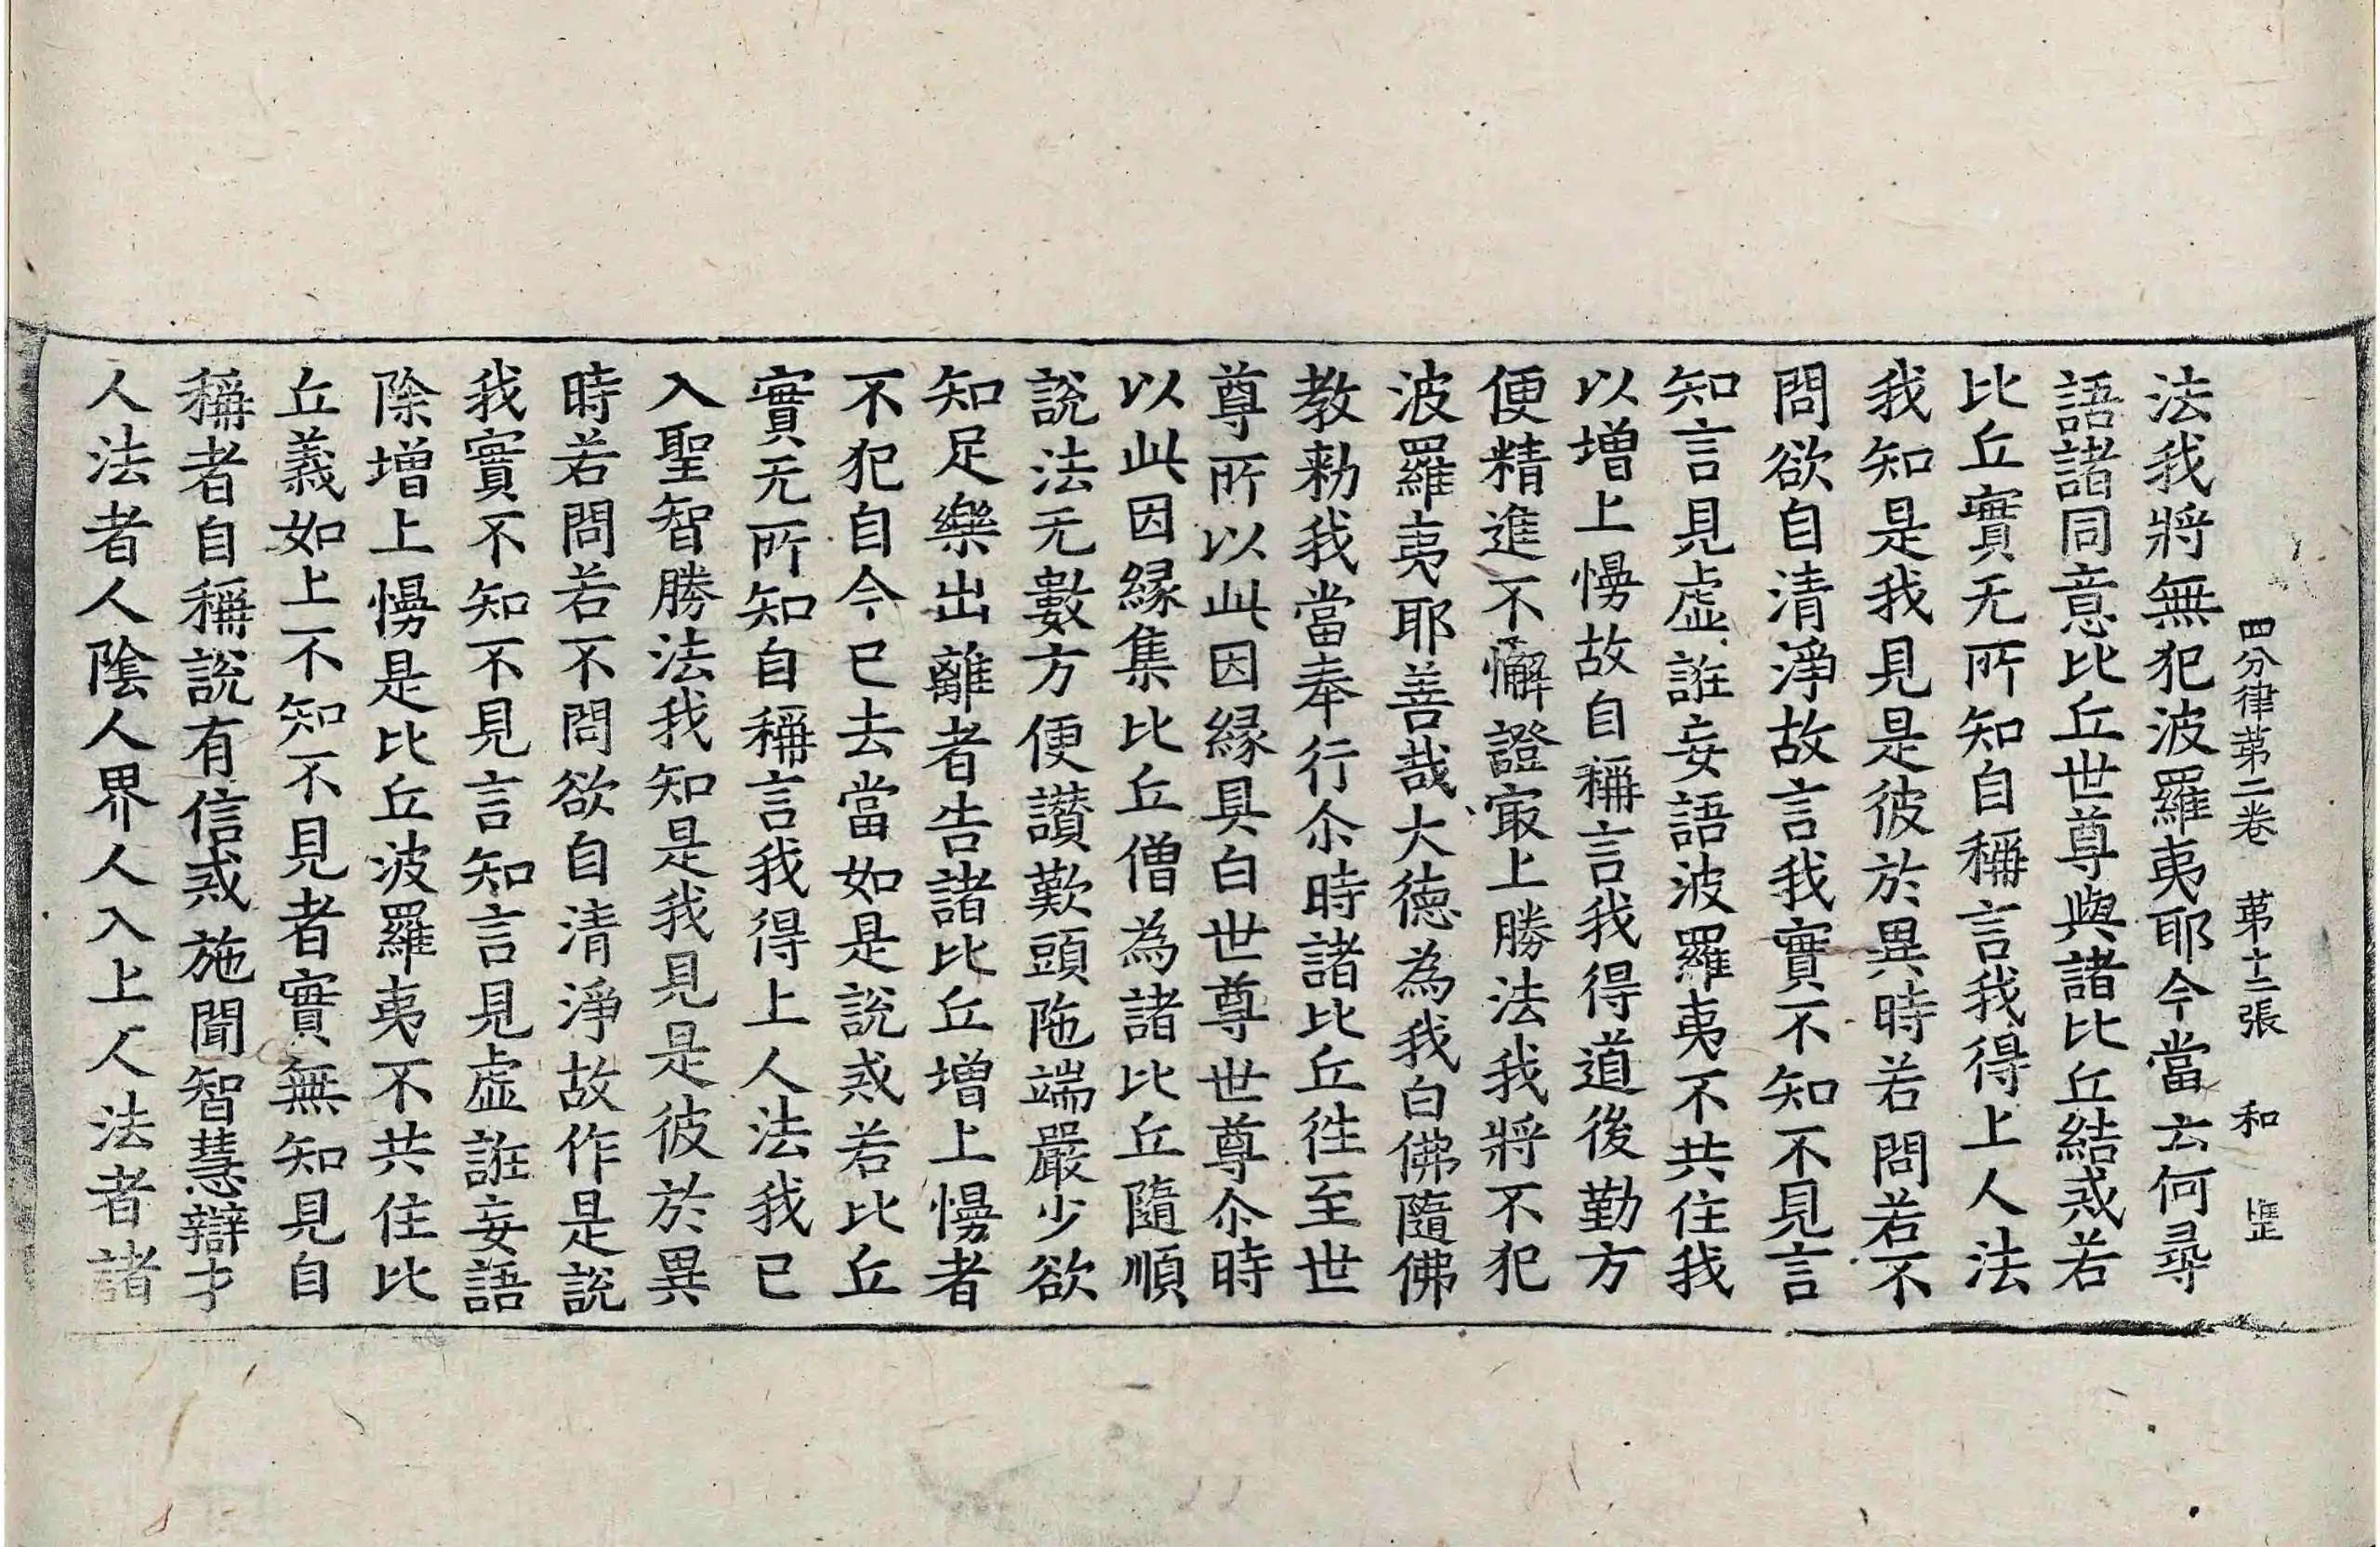 四分律第二卷 第十二張 和
法我將無犯波羅夷耶今當云何尋
語諸同意比丘世尊與諸比丘結戒若
比丘實无所知自稱言我得上人法
我知是我見是彼於異時若問若不
問欲自清淨故言我實不知不見言
知言見虛誑妄語波羅夷不共住我
以增上慢故自稱言我得道後勤方
便精進不懈證㝡上勝法我將不犯
波羅夷耶善哉大德為我白佛隨佛
教勑我當奉行尒時諸比丘徃至世
尊所以此因緣具白世尊世尊尒時
以此因緣集比丘僧為諸比丘隨順
說法无數方便讃歎頭陁端嚴少欲
知足樂出離者告諸比丘增上慢者
不犯自今已去當如是說戒若比丘
實无所知自稱言我得上人法我已
入聖智勝法我知是我見是彼於異
時若問若不問欲自清淨故作是說
我實不知不見言知言見虛誑妄語
除增上慢是比丘波羅夷不共住比
丘義如上不知不見者實無知見自
稱者自稱說有信戒施聞智慧辯才
人法者人陰人界人入上人法者諸